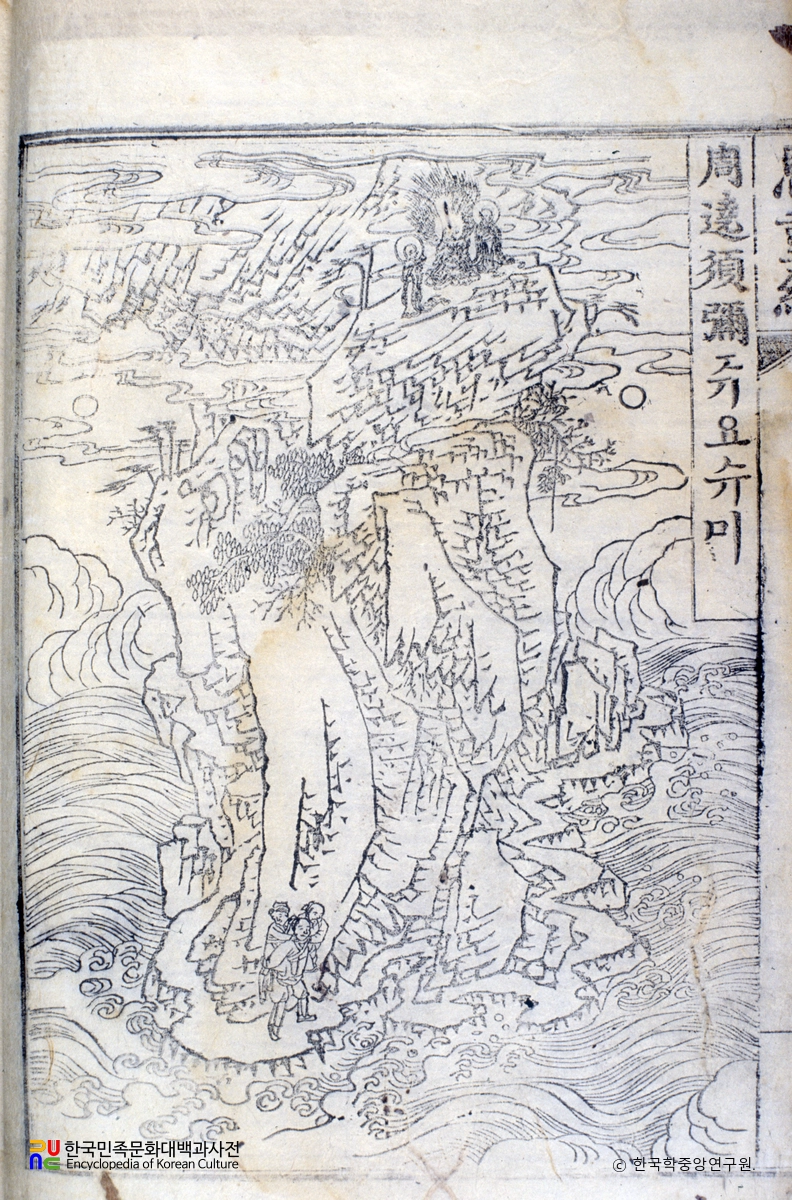 周遶須彌쥬요슈미
한국민족문화대백과사전
Encyclopedia of Korean Culture
ⓒ 한국학중앙연구원